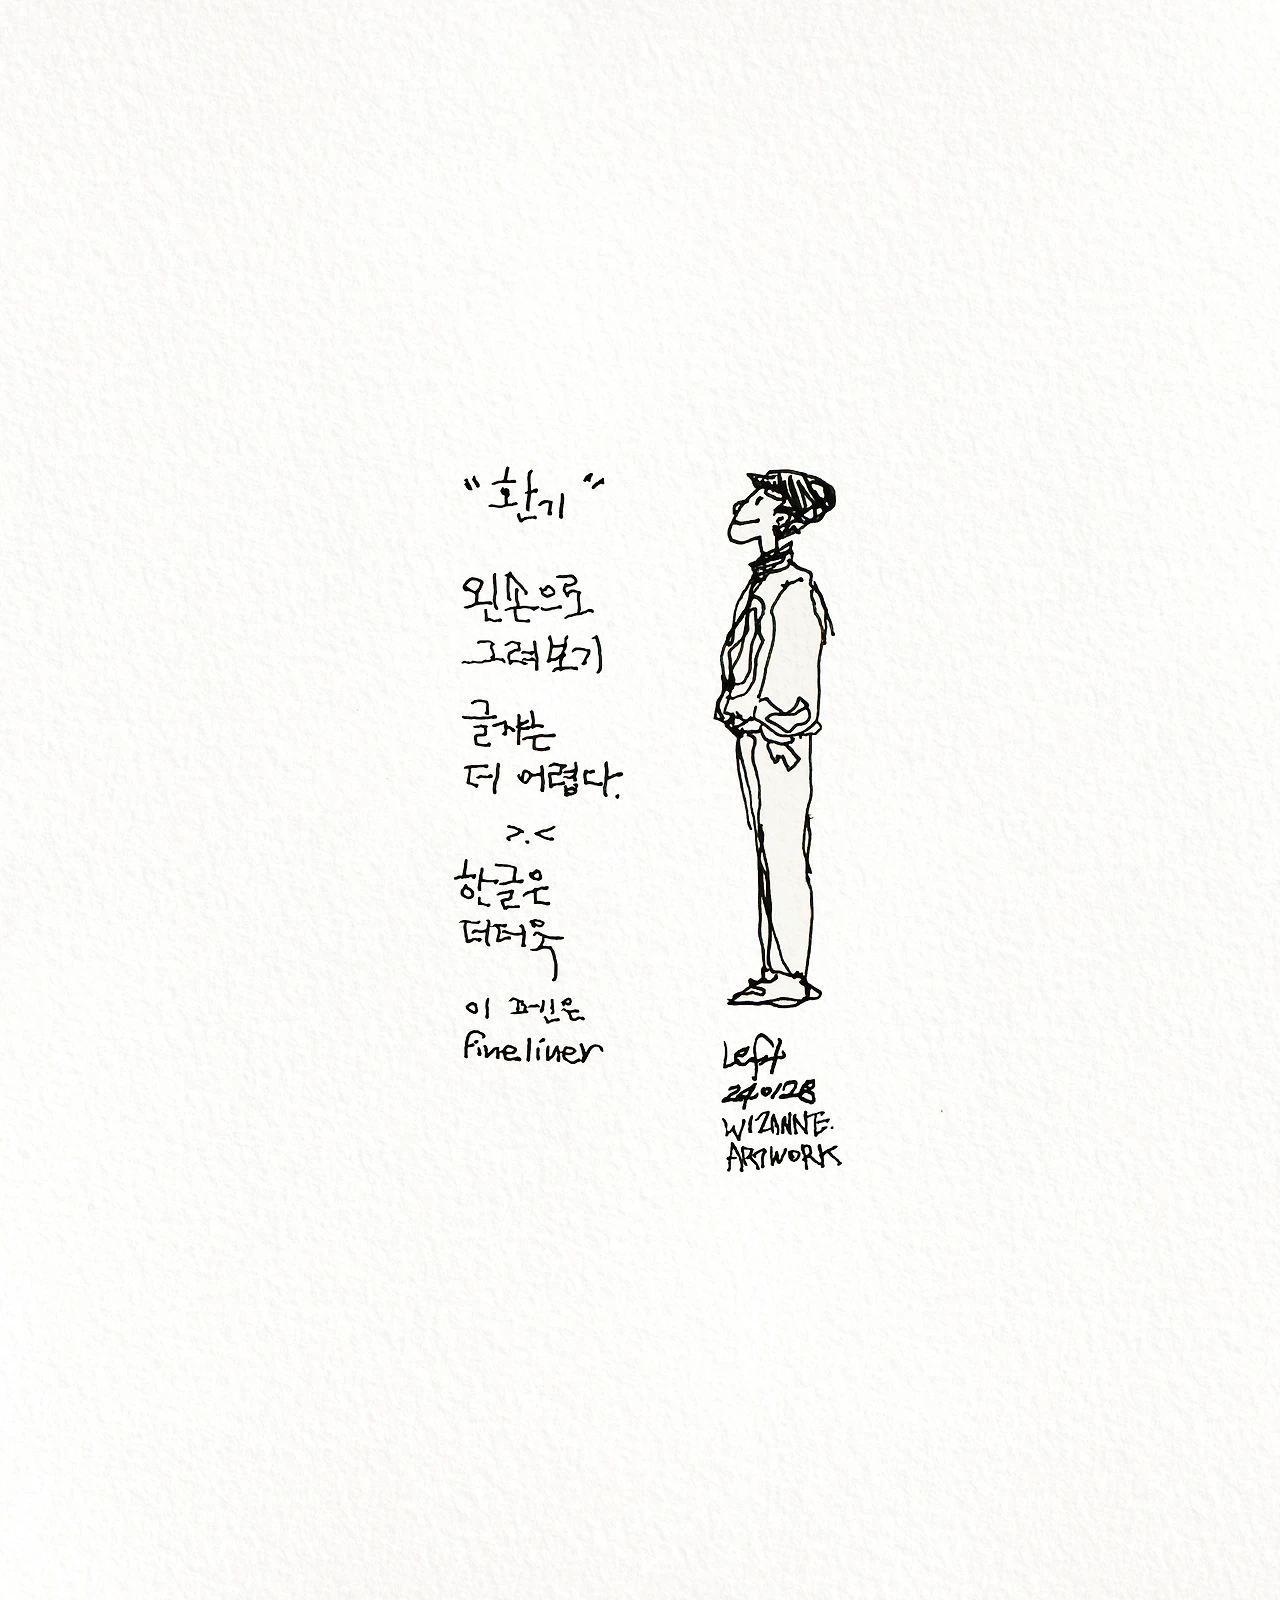 "환기"
왼손으로
그려보기
글자는
더 어렵다.
>.<
한글은
더더욱
이 페인은
fineliner
Left
240128
WIZANNE.
ARTWORK